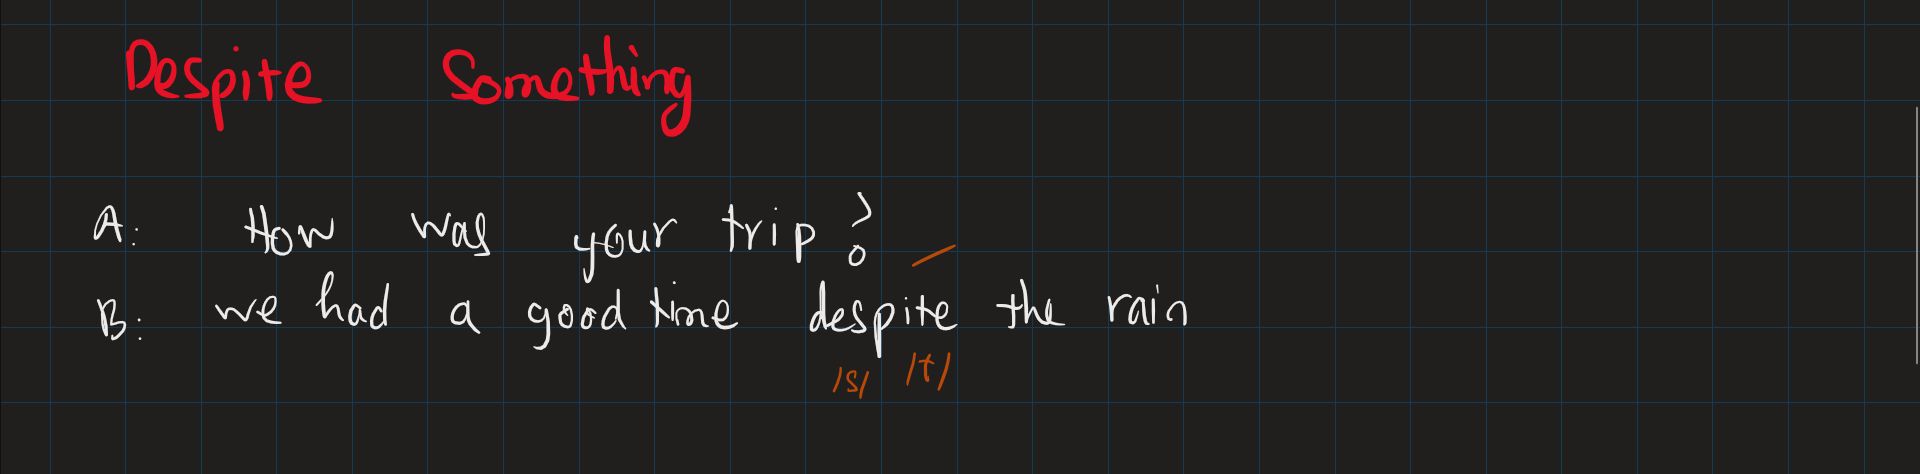 Despite Something
A: How was your trip?
B: we had a good time despite the rain
/s/ /t/